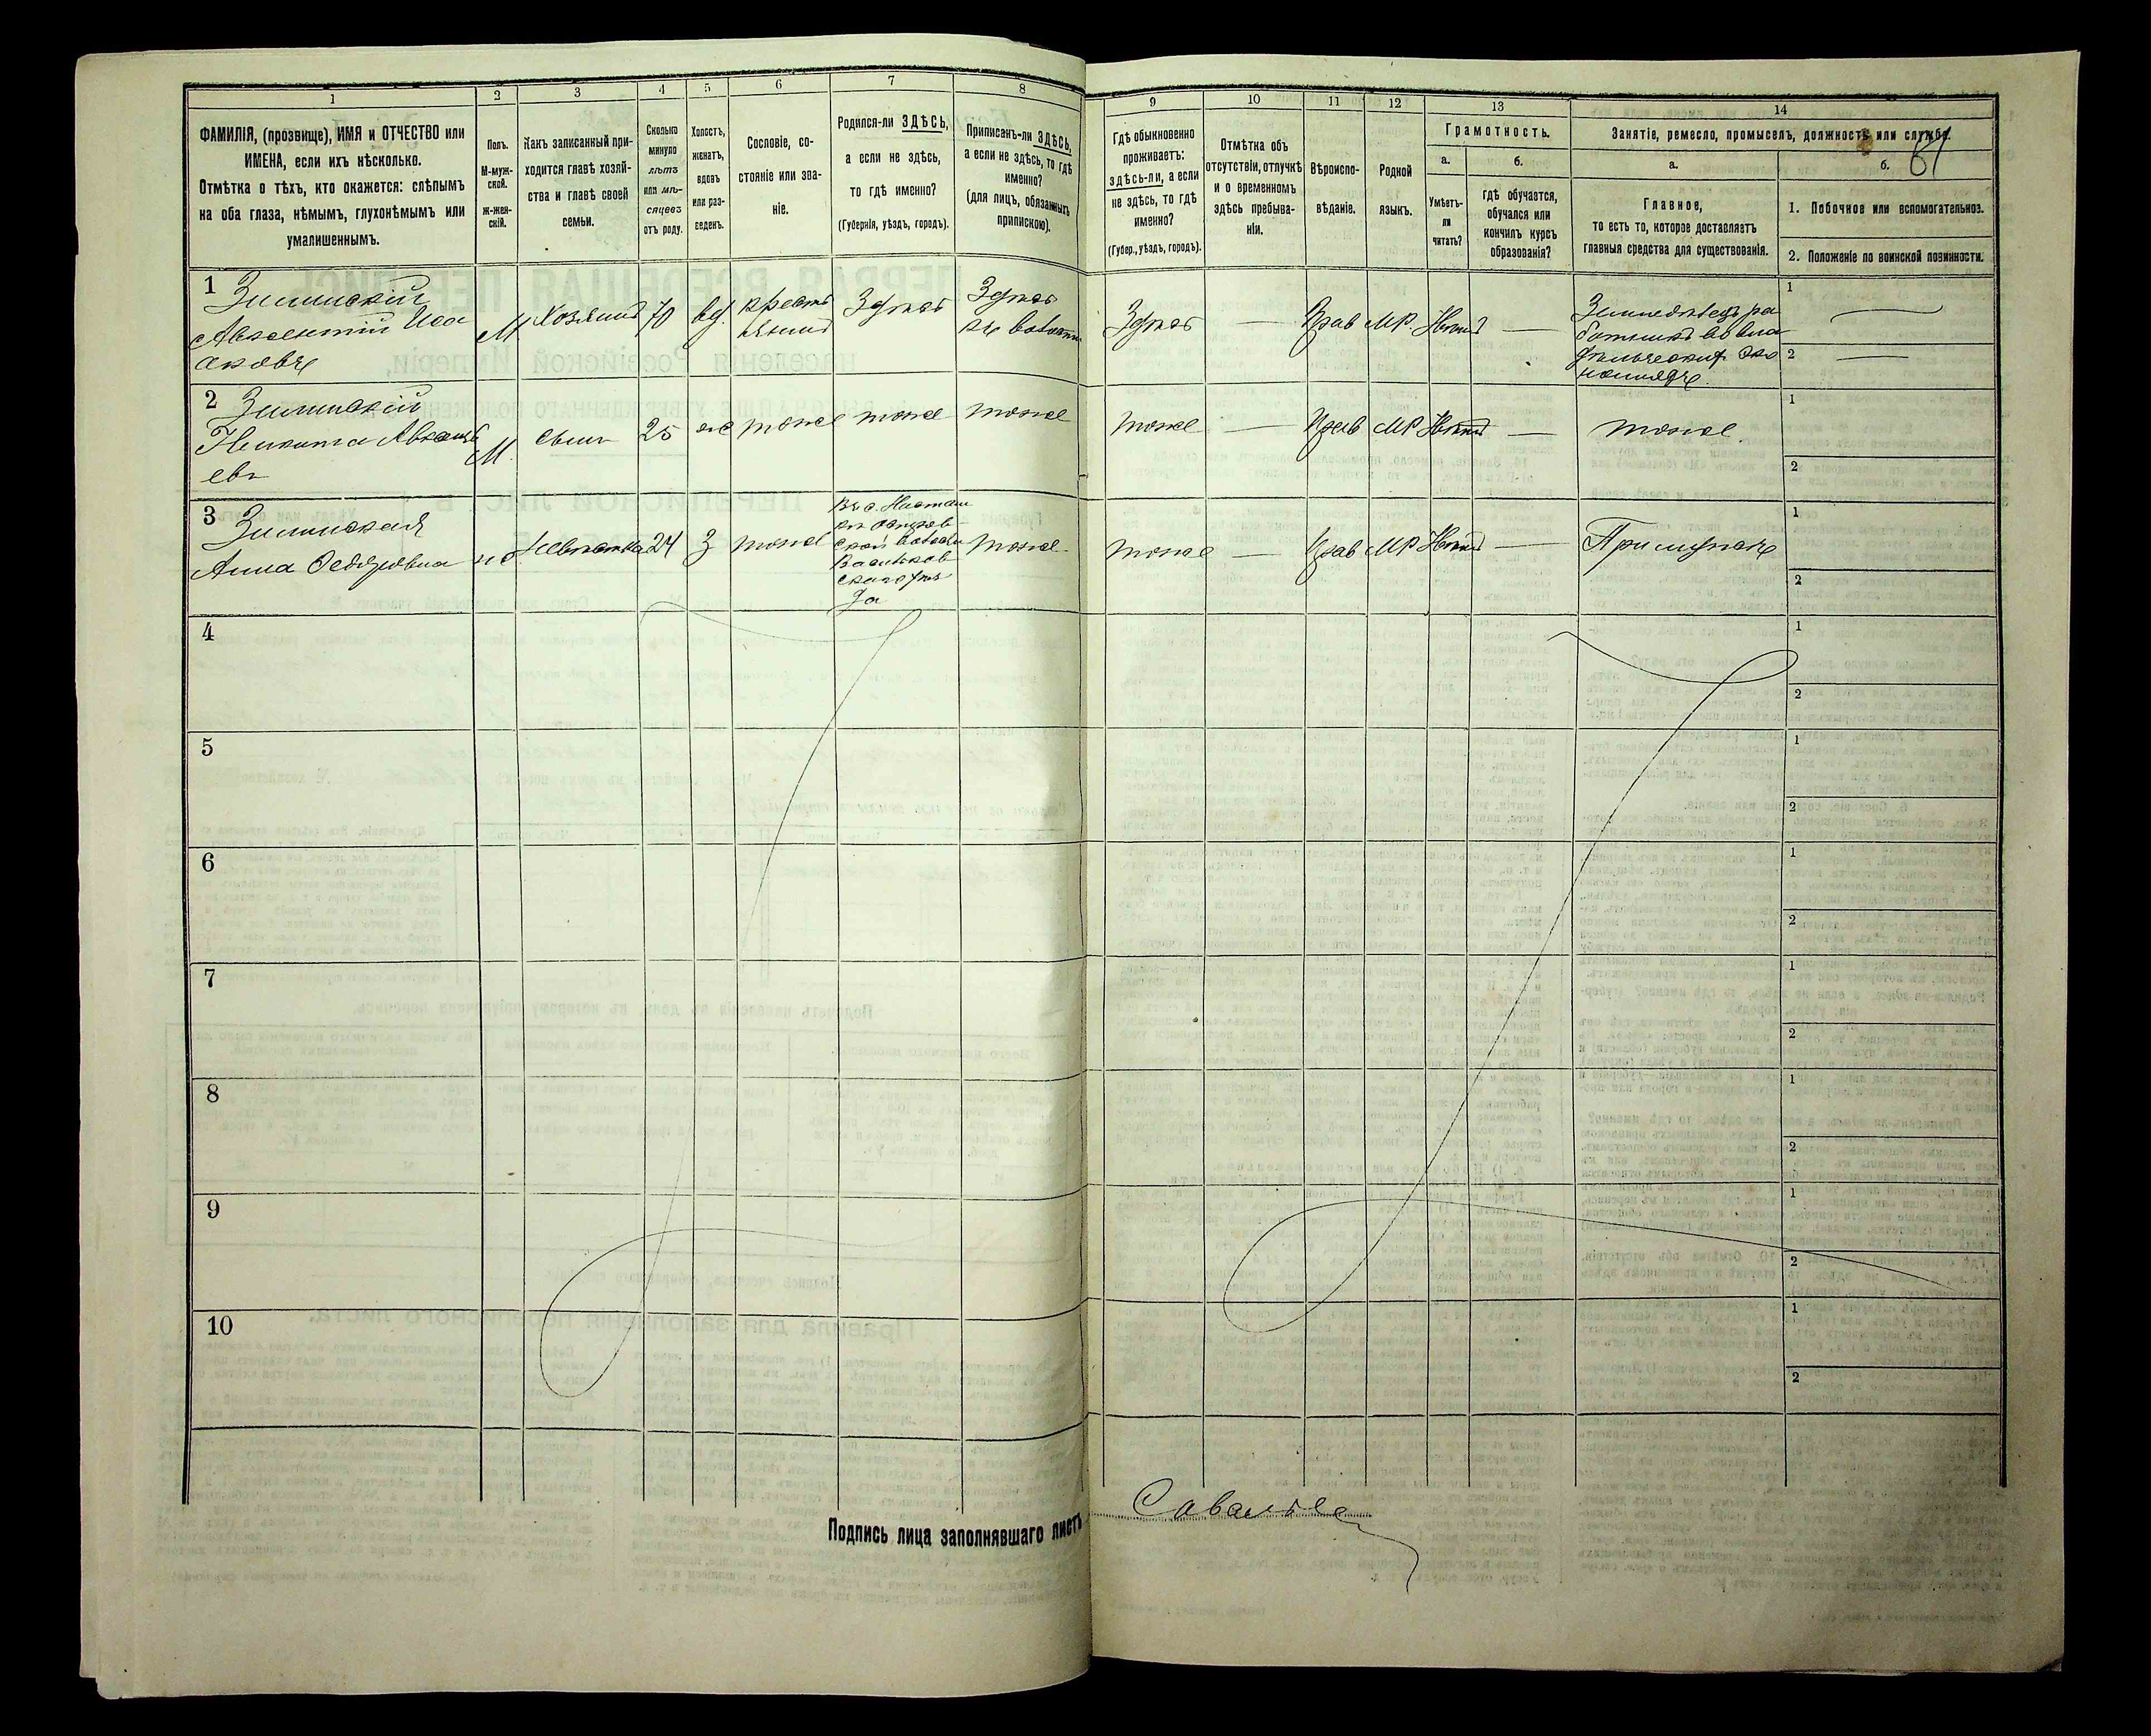 1
2
3
4
5
6
7
8
ФАМИЛІЯ, (прозвище), ИМЯ и ОТЧЕСТВО или
ИМЕНА, если ихъ нѣсколько.
Отмѣтка о тѣхъ, кто окажется: слѣпымъ
на оба глаза, нѣмымъ, глухонѣмымъ или
умалишеннымъ.
Полъ.
М-муж-
ской.
ж-жен-
скій.
Какъ записанный при-
ходится главѣ хозяй-
ства и главѣ своей
семьи.
Сколько
минуло
лѣтъ
или мѣ-
сяцевъ
отъ роду.
Холостъ,
женатъ,
вдовъ
или раз-
веденъ.
Сословіе, со-
стояніе или зва-
ніе.
Родился-ли ЗДѢСЬ,
а если не здѣсь,
то гдѣ именно?
(Губернія, уѣздъ, городъ).
Приписанъ-ли ЗДѢСЬ,
а если не здѣсь, то гдѣ
именно?
(для лицъ, обязанныхъ
припискою).
9
10
11
12
13
14
Гдѣ обыкновенно
проживаетъ:
здѣсь-ли, а если
не здѣсь, то гдѣ
именно?
(Губер., уѣздъ, городъ).
Отмѣтка объ
отсутствіи, отлучкѣ
и о временномъ
здѣсь пребыва-
ніи.
Вѣроиспо-
вѣданіе.
Родной
языкъ.
Грамотность.
а.
б.
Умѣетъ-
ли
читать?
гдѣ обучается,
обучался или
кончилъ курсъ
образованія?
Занятіе, ремесло, промыселъ, должность или служба.
а.
б.
81
Главное,
то есть то, которое доставляетъ
главныя средства для существованія.
1. Побочное или вспомогательное.
2. Положеніе по воинской повинности.
1
Зилинскій
Авксентій Иса
аковъ
М
Хозяинъ
70
вд.
крестъ
янинъ
Здѣсь
Здѣсь
Здѣсь
—
Прав
МР.
Нѣтъ
—
1 —
2 —
2
Зилинскій
Никита Авксенть
евъ
М.
сынъ
25
ж
тоже
тоже
тоже
тоже
—
Прав
МР
Нѣтъ
—
тоже.
1
2
3
Зилинская
Анна Федоровна
ж
Невѣстка
24
З
тоже
тоже
тоже
—
Прав
МР
Нѣтъ
—
При мужѣ
1
2
4
1
2
5
1
2
6
1
2
7
1
2
8
1
2
9
1
2
10
1
2
Подпись лица заполнявшаго листъ